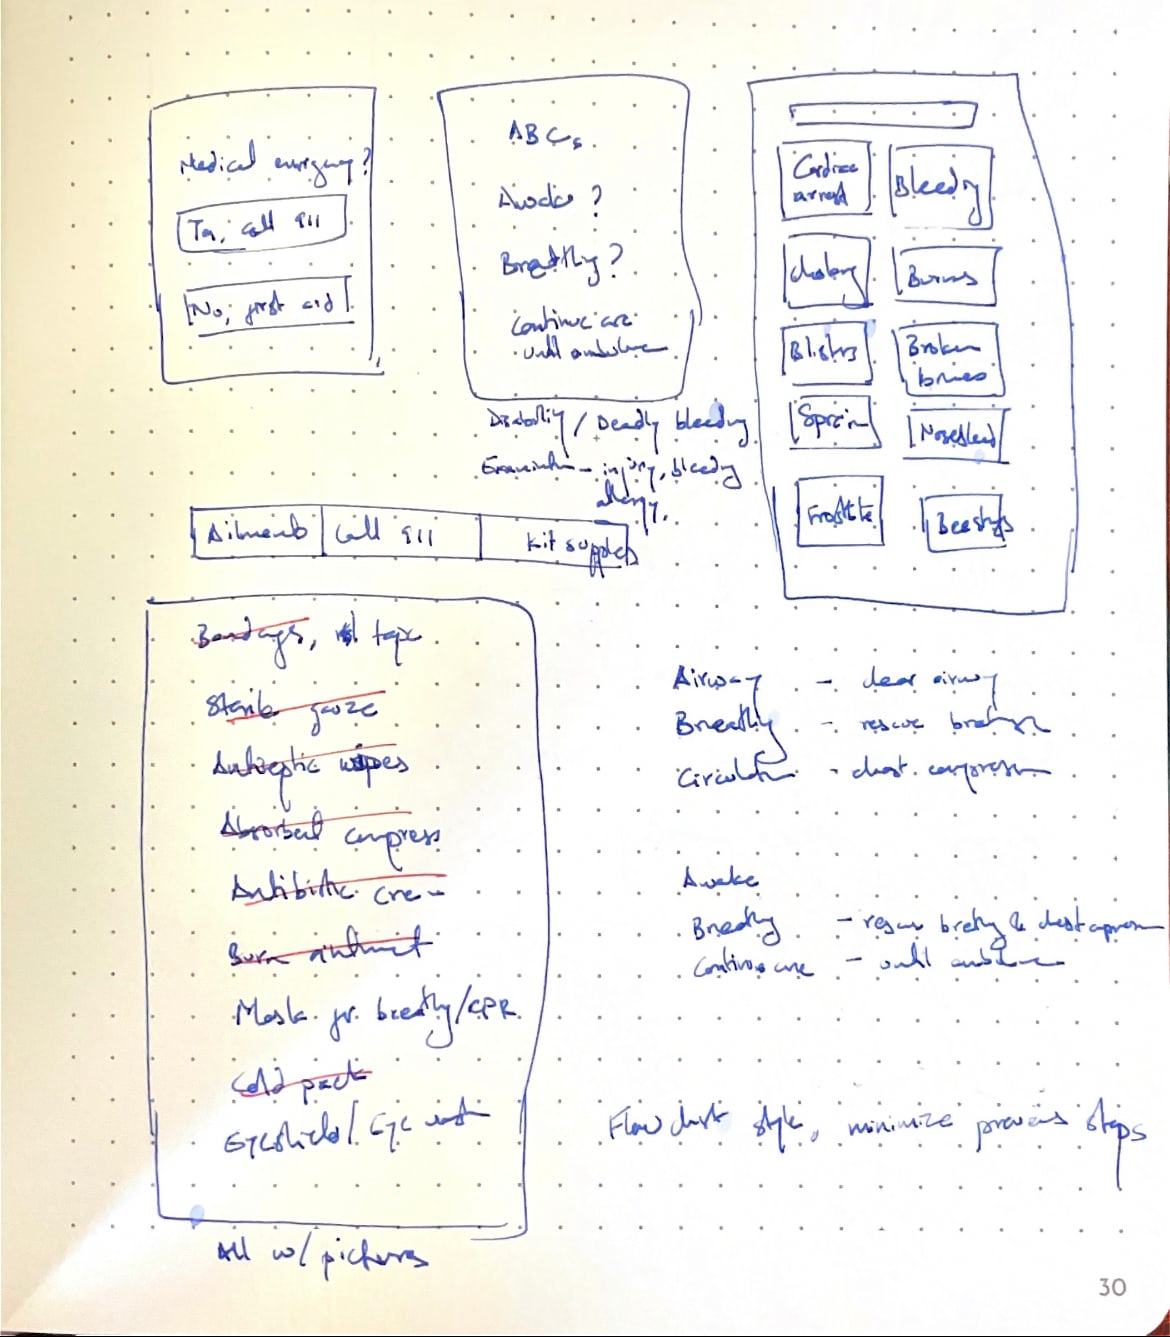 Medical emergency?
Yes, call 911
No, first aid
ABCs
Awake?
Breathing?
Continue care
until ambulance
Disability / Deadly bleeding
Examination - injury, bleeding
allergy.
Cardiac
arrest
Bleeding
choking
Burns
Blisters
Broken
bones
Sprain
Nosebleed
Frostbite
Beestings
Ailments
Call 911
Kit supplies
Bandages, tape
Sterile gauze
Antiseptic wipes
Absorbent compress
Antibiotic cream
Burn ointment
Mask for breathing/CPR
Cold pack
Eyeshield/Eye wash
All w/ pictures
Airway - clear airway
Breathing - rescue breathing
Circulation - chest compression
Awake
Breathing - rescue breathing & chest compression
Continue care - until ambulance
Flow chart style, minimize previous steps
30